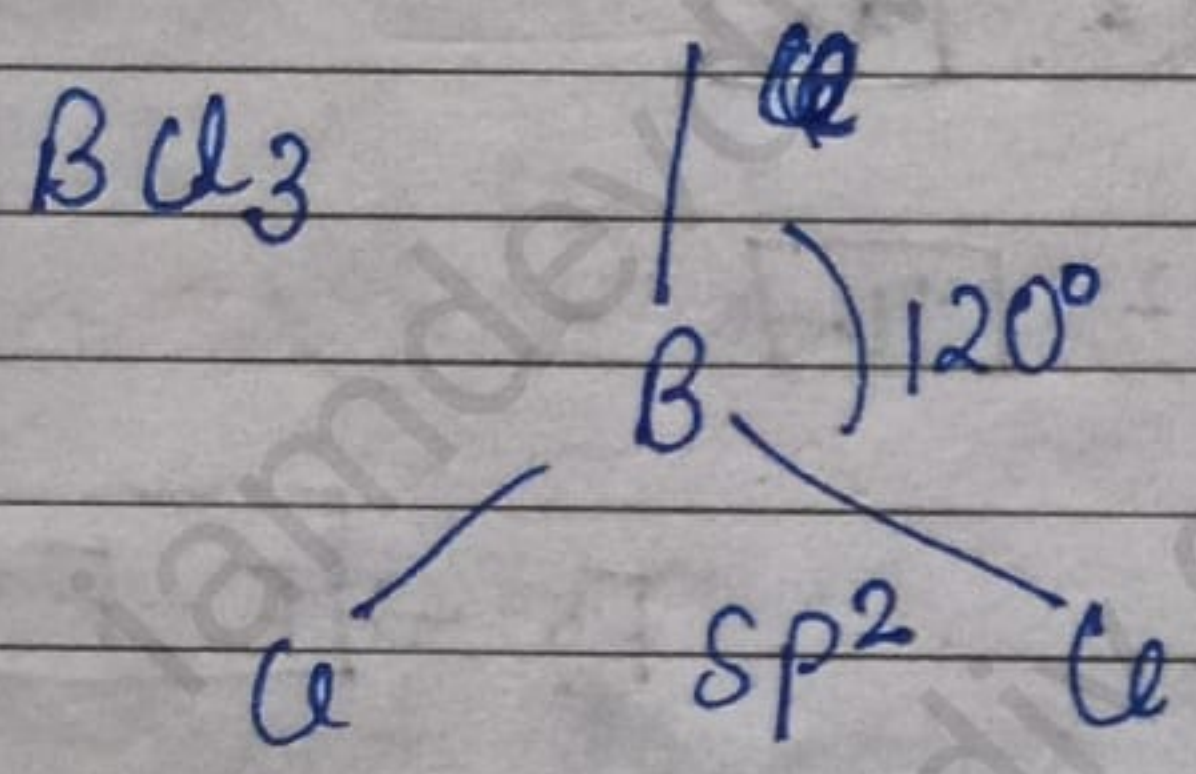 BCl3
Cl
120°
B
Cl
Sp²
Cl